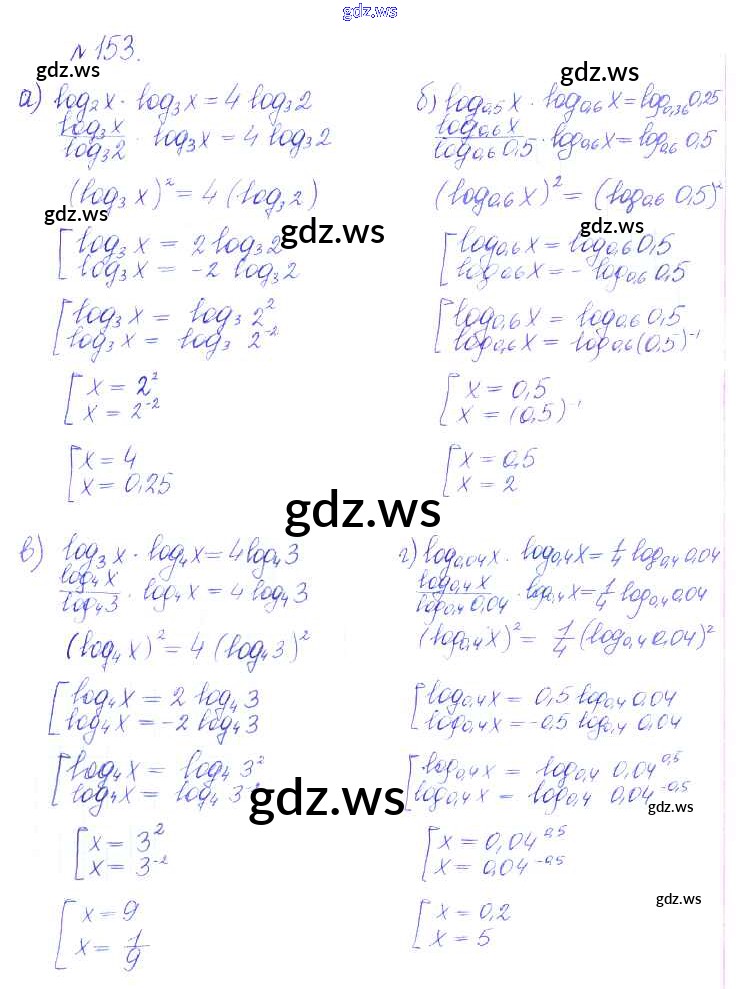 gdz.ws
№ 153.
gdz.ws
gdz.ws
а) log₂x · log₃x = 4 log₃2
log₃x / log₃2 · log₃x = 4 log₃2
(log₃x)² = 4 (log₃2)
gdz.ws
gdz.ws
[ log₃x = 2 log₃2
log₃x = -2 log₃2
[ log₃x = log₃2²
log₃x = log₃ 2⁻²
[ x = 2²
x = 2⁻²
[ x = 4
x = 0,25
б) log₀,₅x · log₀,₆x = log₀,₃₆0,25
log₀,₆x / log₀,₆0,5 · log₀,₆x = log₀,₆ 0,5
(log₀,₆x)² = (log₀,₆ 0,5)²
gdz.ws
[ log₀,₆x = log₀,₆0,5
log₀,₆x = -log₀,₆ 0,5
[ log₀,₆x = log₀,₆0,5
log₀,₆x = log₀,₆(0,5)⁻¹
[ x = 0,5
x = (0,5)⁻¹
[ x = 0,5
x = 2
gdz.ws
в) log₃x · log₄x = 4log₄3
log₄x / log₄3 · log₄x = 4 log₄3
(log₄x)² = 4 (log₄3)²
[ log₄x = 2 log₄3
log₄x = -2 log₄3
[ log₄x = log₄3²
log₄x = log₄ 3⁻²
gdz.ws
[ x = 3²
x = 3⁻²
[ x = 9
x = 1/9
г) log₀,₀₄x · log₀,₄x = 1/4 log₀,₄0,04
log₀,₄x / log₀,₄0,04 · log₀,₄x = 1/4 log₀,₄0,04
(log₀,₄x)² = 1/4 (log₀,₄0,04)²
[ log₀,₄x = 0,5 log₀,₄ 0,04
log₀,₄x = -0,5 log₀,₄ 0,04
[ log₀,₄x = log₀,₄ 0,04^0,5
log₀,₄x = log₀,₄ 0,04^-0,5
gdz.ws
[ x = 0,04^0,5
x = 0,04^-0,5
gdz.ws
[ x = 0,2
x = 5